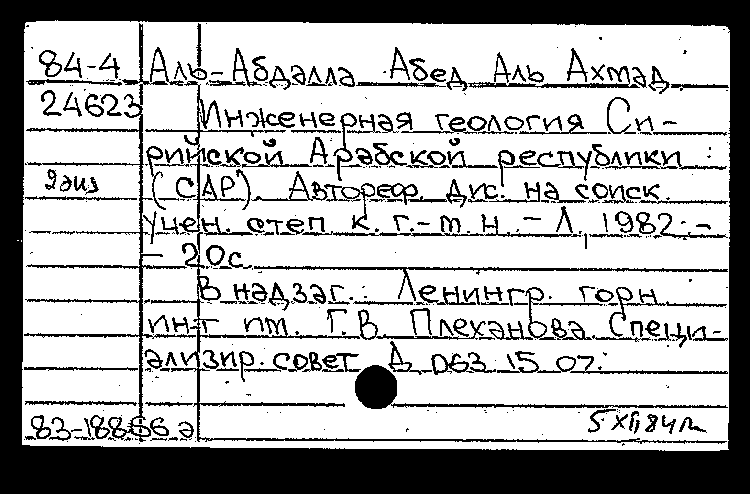 84-4 Аль-Абдалла Абед Аль Ахмад
24623 Инженерная геология Си-
рийской Арабской республики
2 экз (САР). Автореф. дис. на соиск.
учен. степ. к. г.-м. н. – Л, 1982. –
– 20с.
В надзаг.: Ленингр. горн.
ин-т им. Г. В. Плеханова. Специ-
ализир. совет Д 063 15 07.
83-18866 а